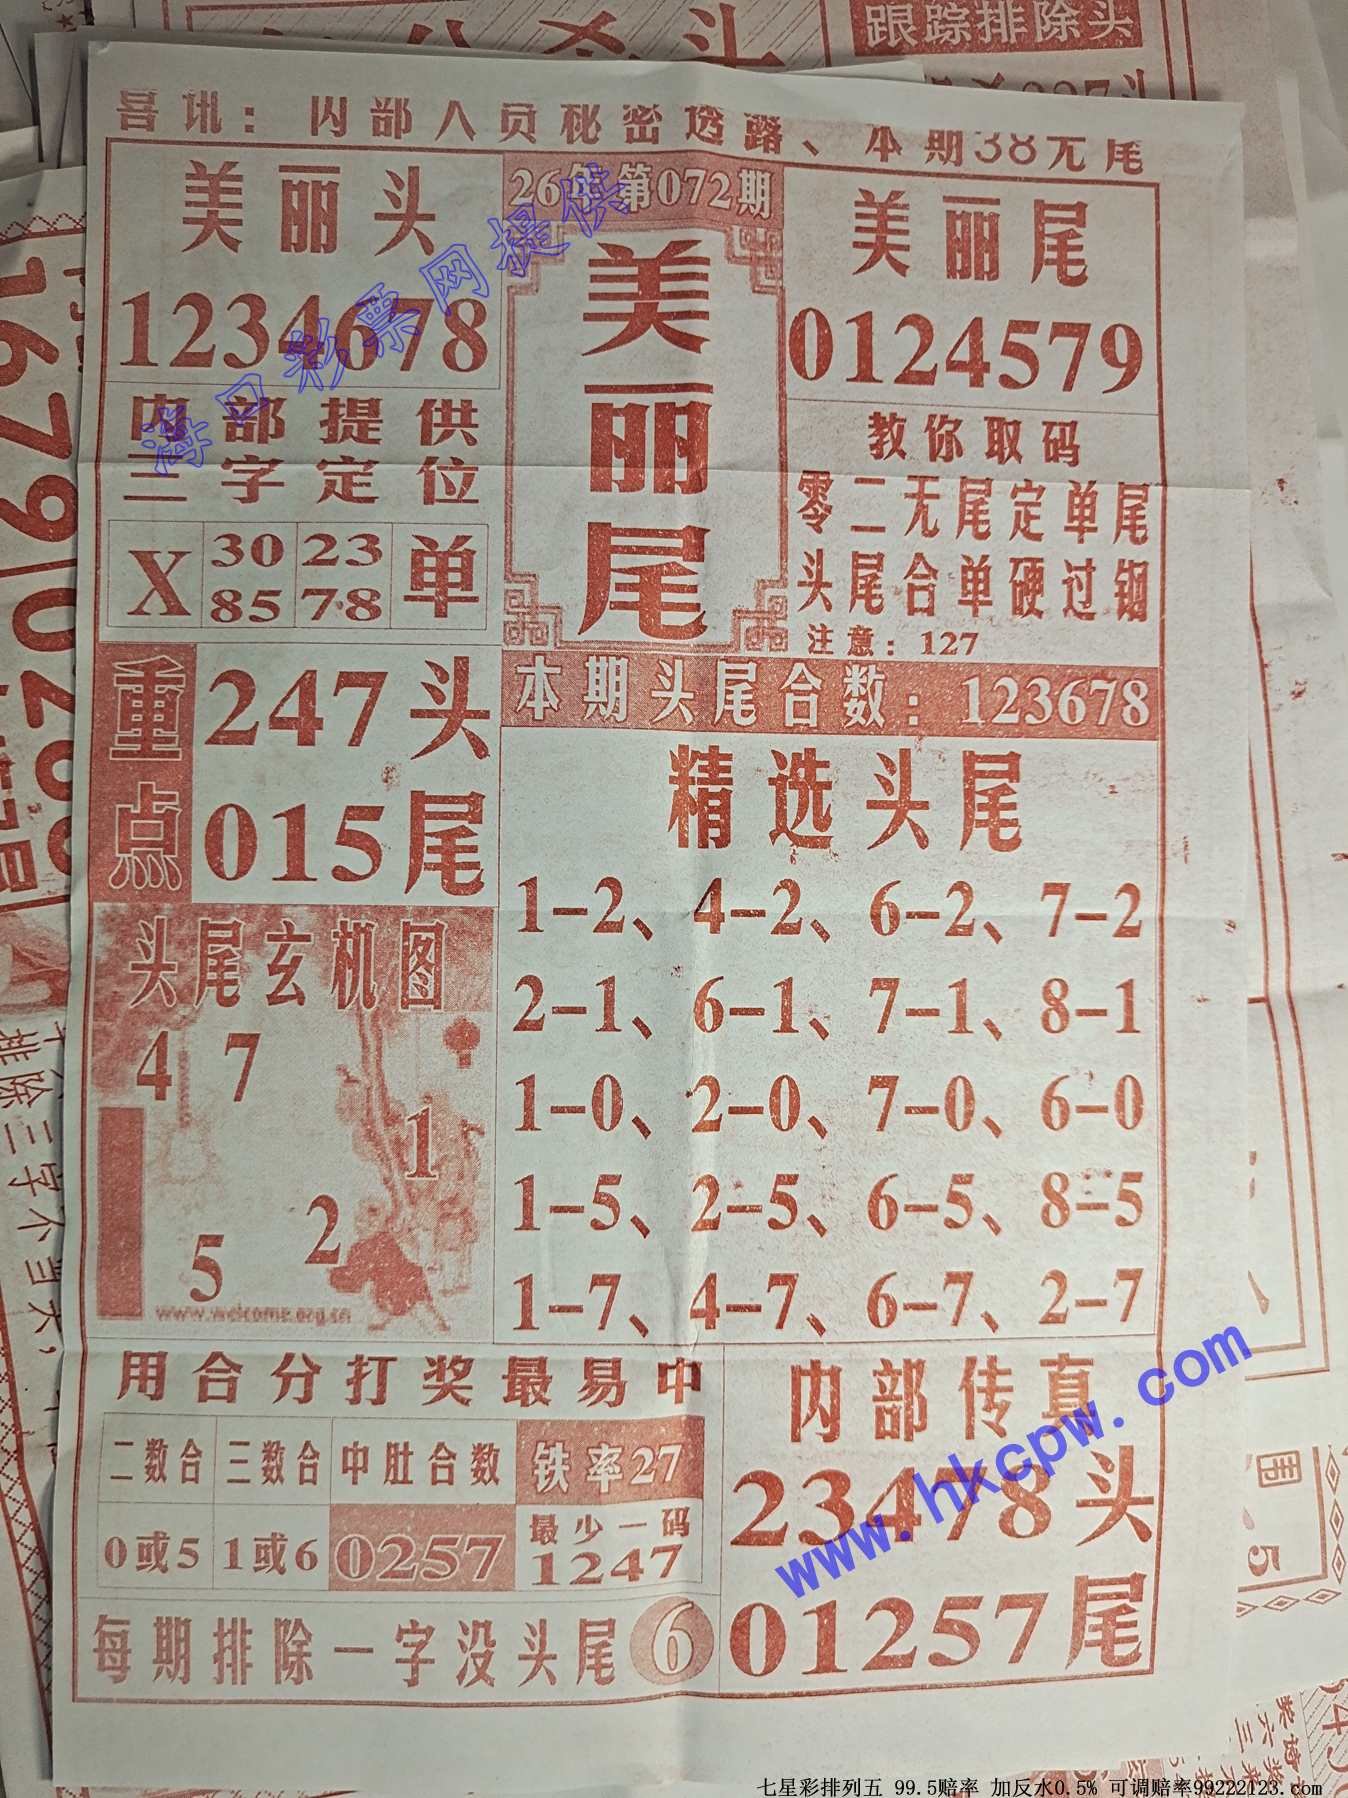 跟踪排除头
喜讯：内部人员秘密透露、本期38无尾
美丽头
1234678
26年第072期
美丽尾
美丽尾
0124579
内部提供
三字定位
X 30 23 单
85 78
教你取码
零二无尾定单尾
头尾合单硬过钢
注意：127
重点
247头
015尾
本期头尾合数：123678
精选头尾
1-2、4-2、6-2、7-2
2-1、6-1、7-1、8-1
1-0、2-0、7-0、6-0
1-5、2-5、6-5、8-5
1-7、4-7、6-7、2-7
头尾玄机图
4 7
1
2
5
www.welcome.org.cn
用合分打奖最易中
二数合 三数合 中肚合数 铁率27
0或5 1或6 0257 最少一码
1247
每期排除一字没头尾6
内部传真
23478头
01257尾
海口彩票网提供
www.hkcpw.com
1679
排除三字个当头，
七星彩排列五 99.5赔率 加反水0.5% 可调赔率99222123.com